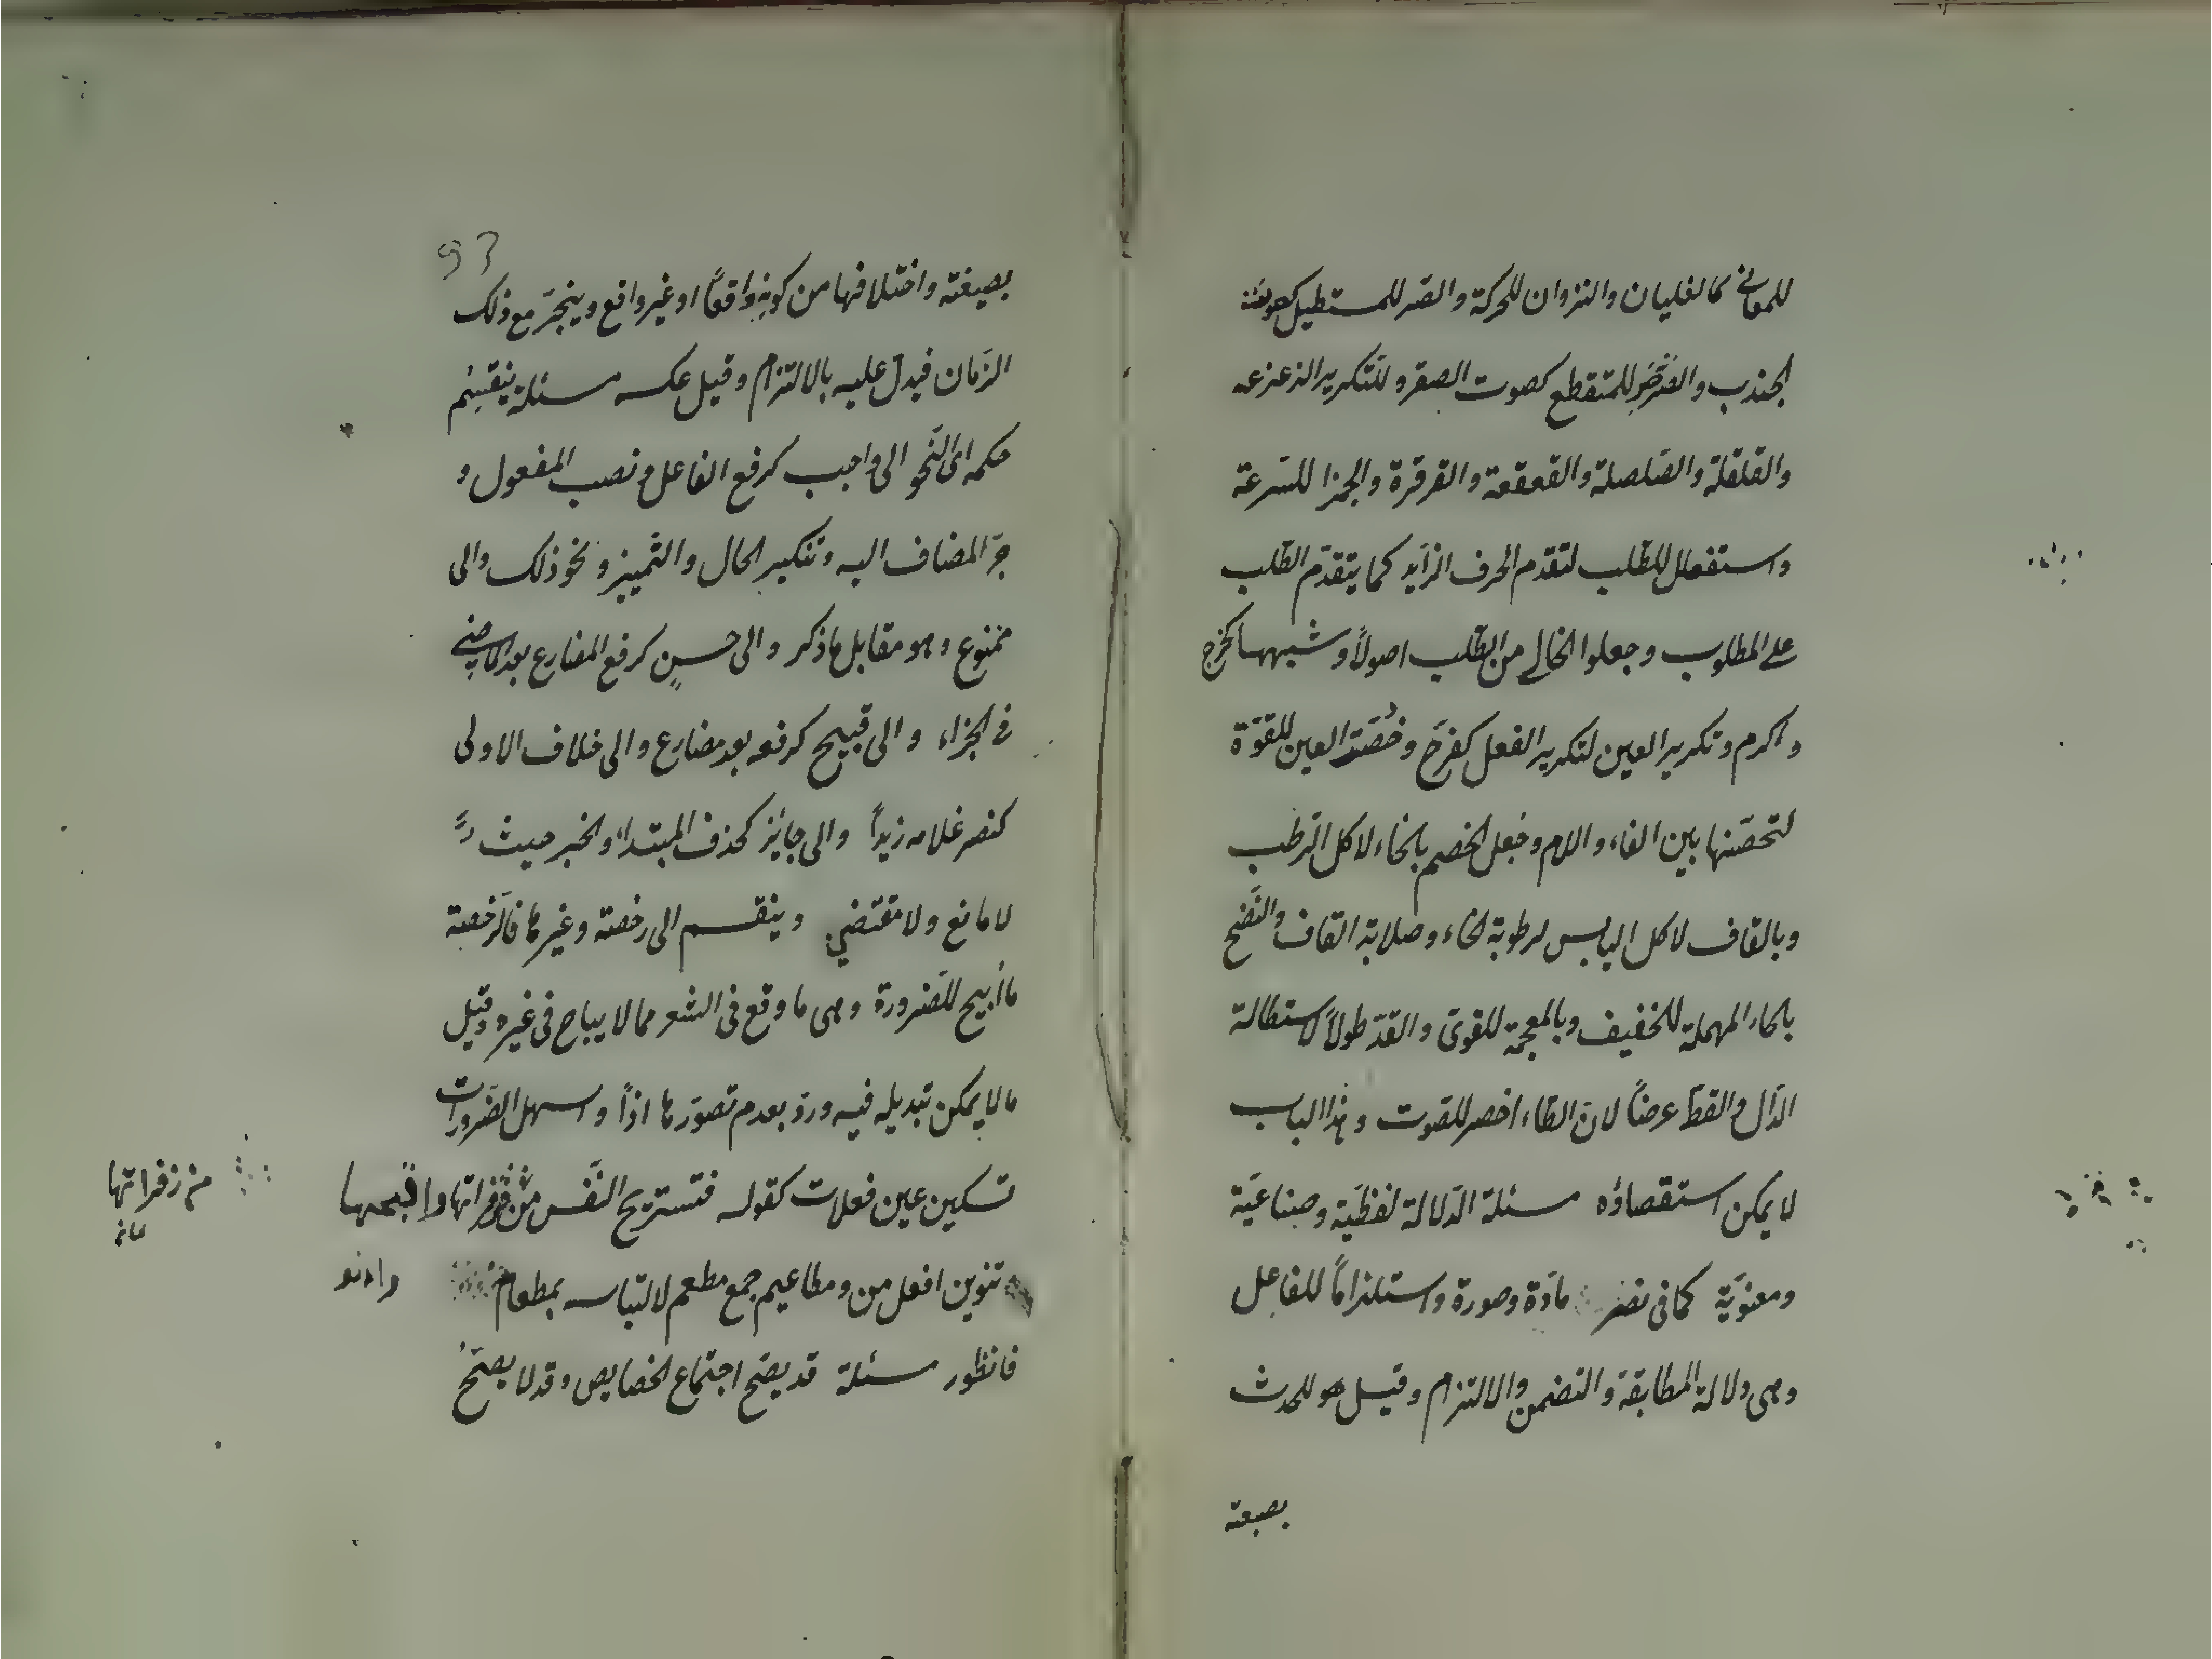 للمعانی كالغليان والنزوان للحركة والصر للمستطيل كصوت
الجندب والصَرْصَر للمتقطع كصوت الصقر وللتكرير الزعزعه
والقلقلة والصلصلة والقعقعة والقرقرة والجمزا للسرعة
واستفعال للطّلب لتقدم الحرف الزايد كما يتقدّم الطّلب
على المطلوب وجعلوا الخالى من الطّلب اصولاً وشبهها كخرج
واكرم وتكرير العين لتكرير الفعل كفرّح وخُصّت العين للقوّة
لتحصّنها بين الفاء واللام وجعل الخضم بالخاء لاكل الرّطب
وبالقاف لاكل اليابس لرطوبة الخاء وصلابة القاف والنّضح
بالحاء المهملة للخفيف وبالمعجمة للقوىّ والقدّ طولاً لاستطالة
الدّال والقطّ عرضاً لانّ الطّاء اخصر للصّوت وهذا الباب
لا يمكن استقصاؤه مسئلة الدّلالة لفظيّة وصناعيّة
ومعنويّة كما فى نصر مادّة وصورة واستلزاماً للفاعل
وهى دلالة المطابقة والتضمن والالتزام وقيل هو للحدث
بصيغة
93
بصيغته واختلافها من كونه واقعاً او غير واقع وينجرّ مع ذلك
الزّمان فيدلّ عليه بالالتزام وقيل عكسه مسئلة ينقسم
حكمه اى النّحو الى واجب كرفع الفاعل ونصب المفعول و
جرّ المضاف اليه وتنكير الحال والتّمييز ونحو ذلك والى
ممنوع وهو مقابل ما ذكر والى حسن كرفع المضارع بعد الماضى
فى الجزاء والى قبيح كرفعه بعد مضارع والى خلاف الاولى
كنصر غلامه زيداً والى جايز كحذف المبتداء والخبر حيث
لا مانع ولا مقتضي وينقسم الى رخصة وغيرها فالرّخصة
ما اُبيح للضّرورة وهى ما وقع فى الشعر مما لا يباح فى غيره وقيل
ما لا يمكن تبديله فيه وردّ بعدم تصوّرها اذاً واسهل الضّرورات
تسكين عين فعلات كقوله فتستريح النّفس من زفراتها واقبحها
من زفراتها
تنوين افعل من ومطاعيم جمع مطعم لالتباسه بمطعام
فانظور مسئلة قد يصحّ اجتماع الخصايص وقد لا يصحّ